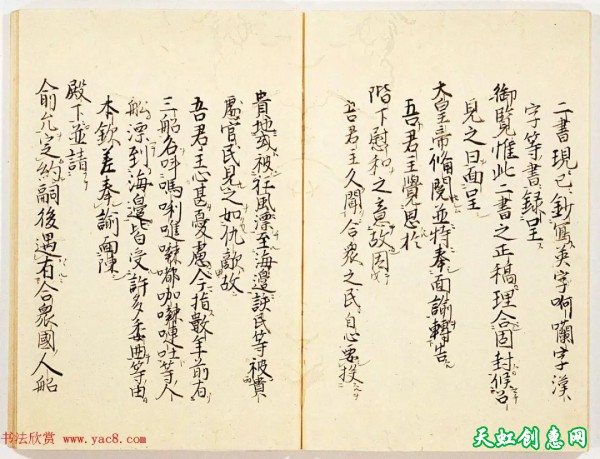 二書現已鈔寫英字啊囒字漢
字等書錄呈
御覽惟此二書之正稿理合固封候召
見之日面呈
大皇帝俻閱並特奉面諭轉告
吾君主覺恩於
階下慰和之意故因
吾君主久聞合衆之民自心要投
貴地或被狂風漂至海邊該民等被貴
處官民見之如仇敵故
吾君主心甚憂慮今指數年前有
三船名
等人
船漂到海邊皆受許多委曲等由
本欽差奉諭面陳
殿下並請
俞允定約嗣後遇有合衆國人船
书法欣赏 www.yac8.com
天虹创惠网